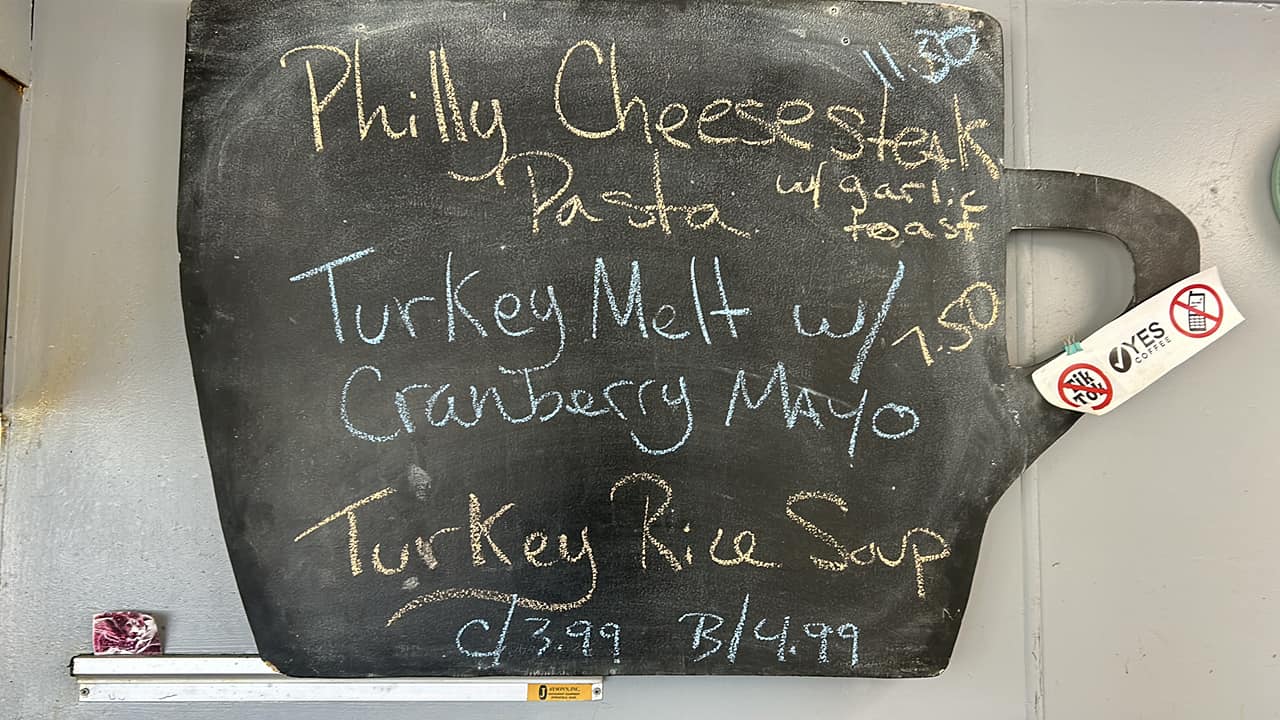 11.30
Philly Cheesesteak
Pasta w/ garlic
toast
Turkey Melt w/ 7.50
Cranberry Mayo
Turkey Rice Soup
C/3.99 B/4.99
YES
COFFEE
Tik
Tok
J